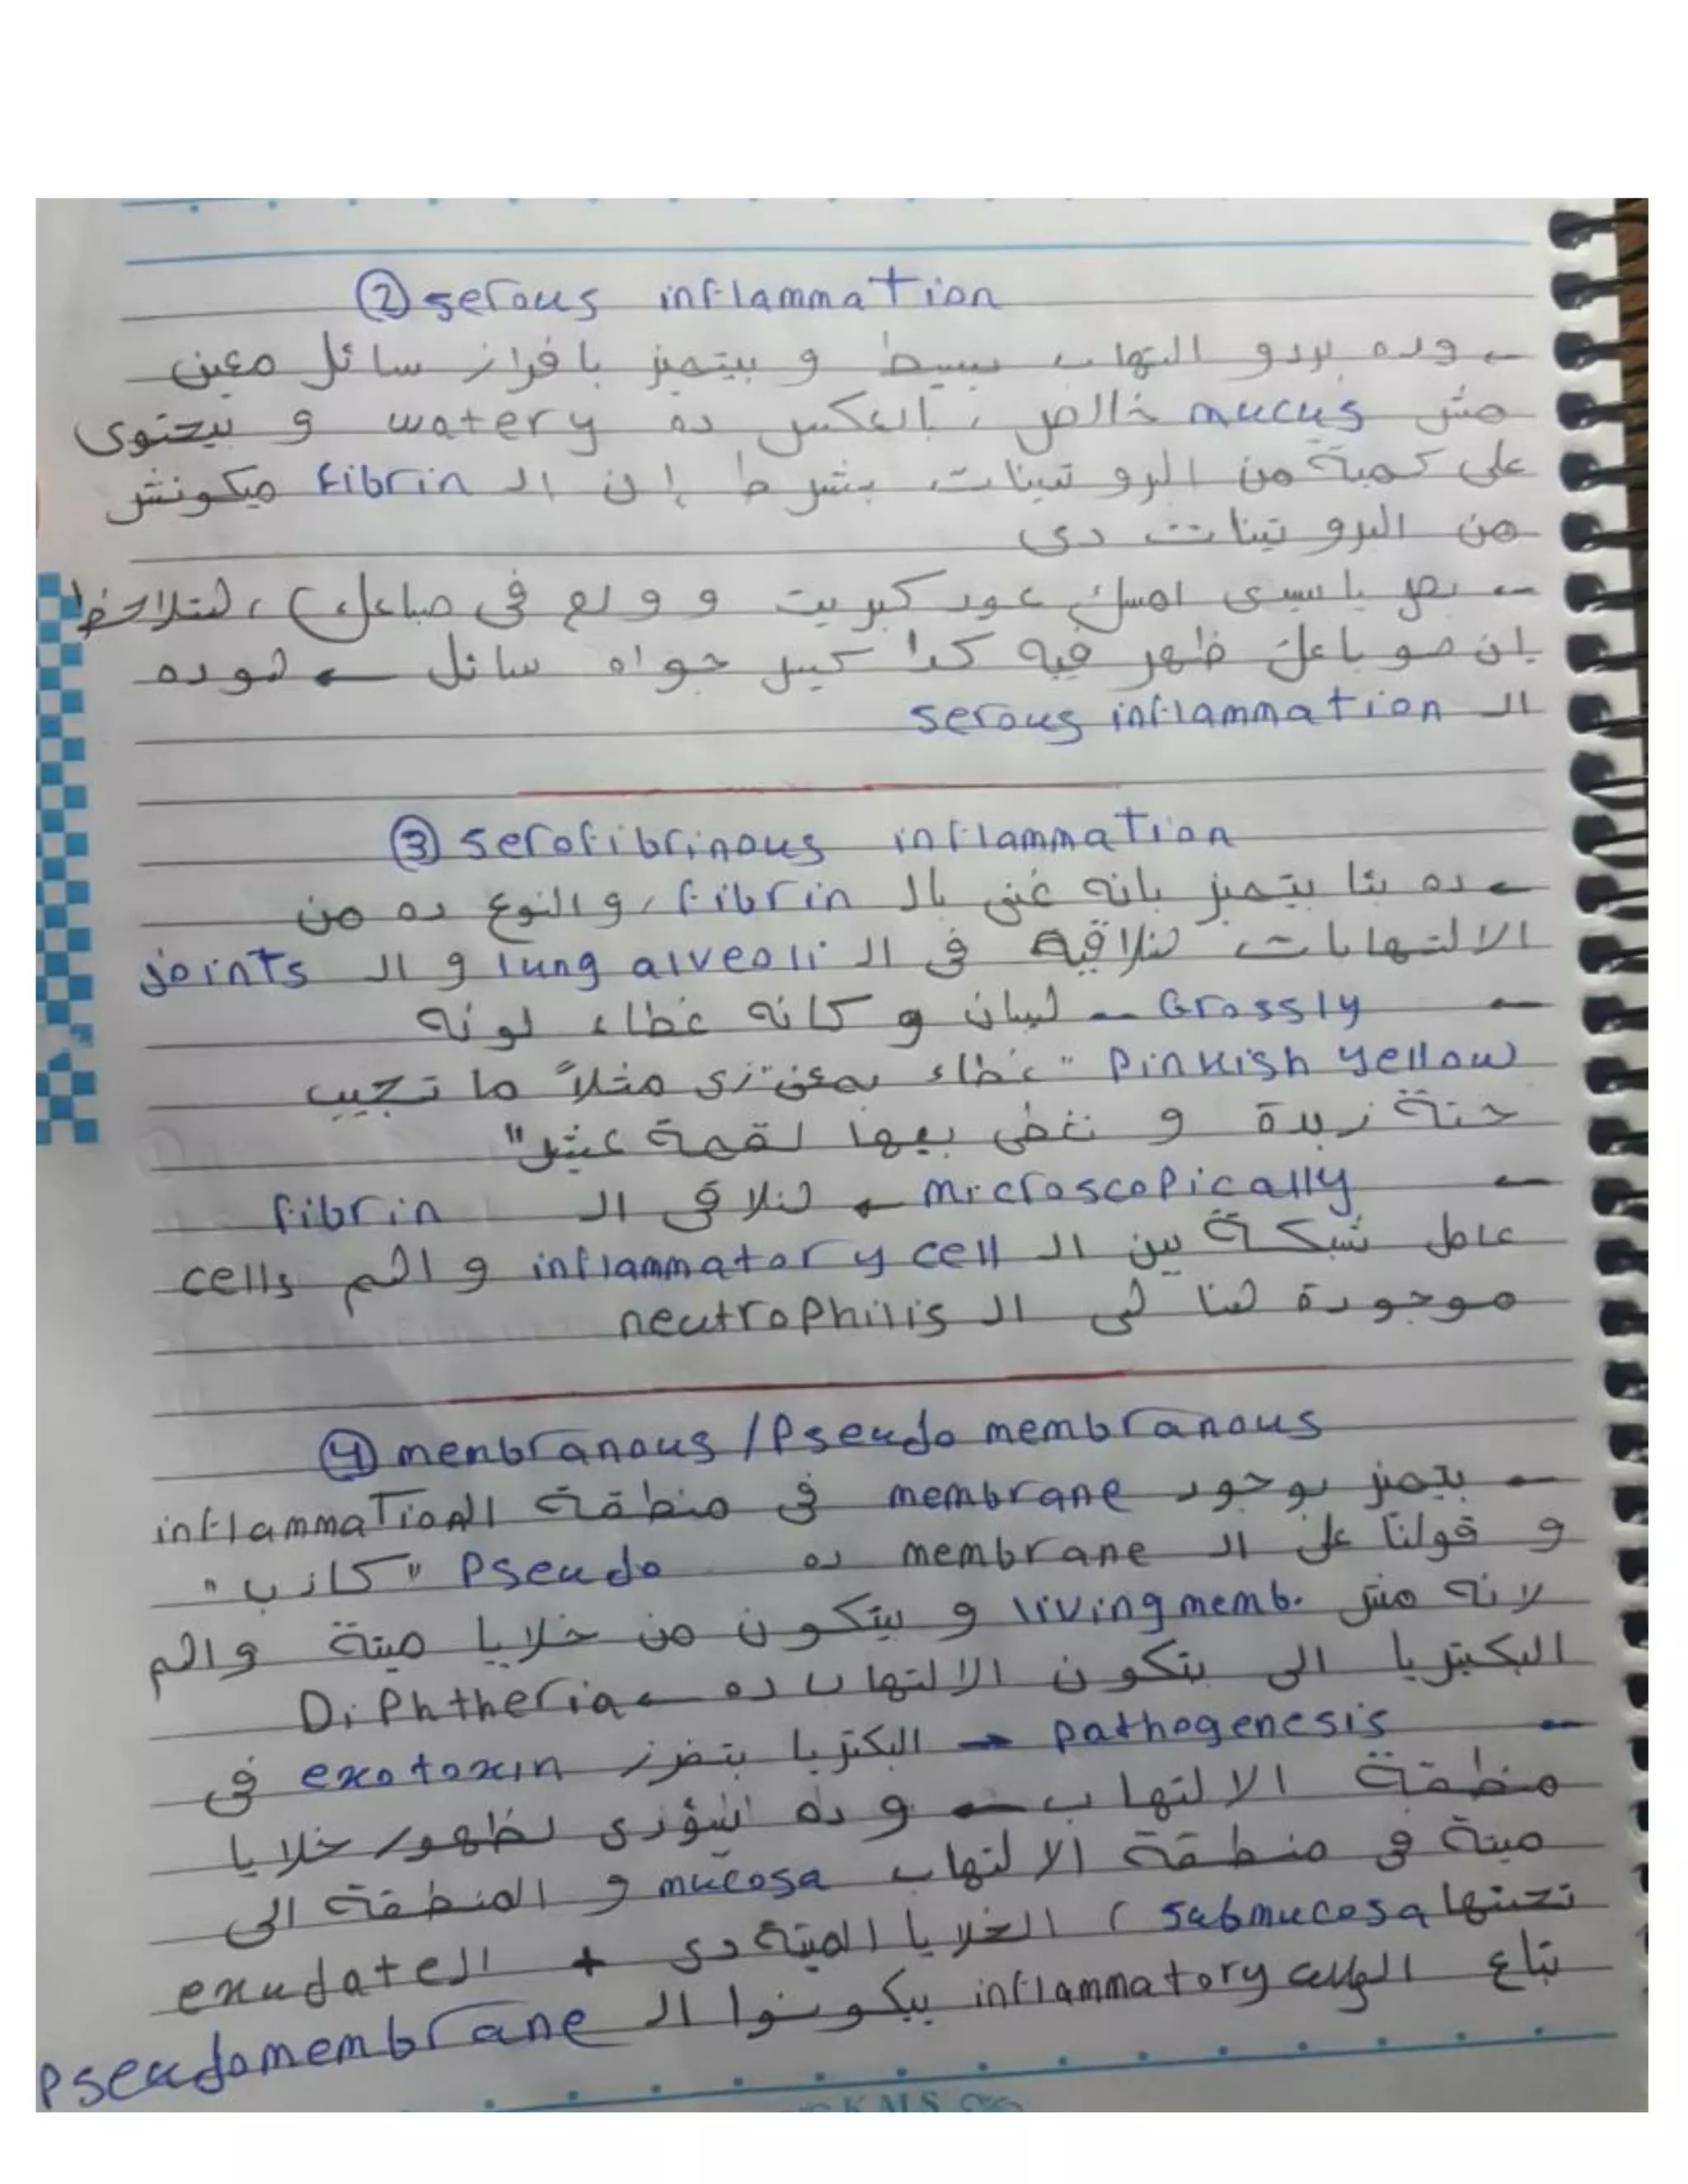 ② serous inflammation
← وده بردو التهاب بسيط و بيتميز بافراز سائل معين
مش mucus خالص ، بالعكس ده watery و بيحتوى
على كمية من البروتينات بشرط إن الـ fibrin ميكونش
من البروتينات دى
← بص يا سيدى امسك عود كبريت و ولع فى صباعك ) ، هتلاحظ
إن صوباعك ظهر فيه كدا كيس جواه سائل ← هو ده
الـ serous inflammation
③ serofibrinous inflammation
← ده بقا بيتميز بانه غنى بالـ fibrin ، و النوع ده من
الالتهابات هنلاقيه فى الـ lung alveoli و الـ joints
← Grossly ← هيبان و كانه غطاء لونه
Pinkish yellow "غطاء بمعنى زى مثلاً ما تجيب
حتة زبدة و تغطى بيها لقمة عيش"
← Microscopically ← هنلاقى الـ fibrin
عامل شبكة بين الـ inflammatory cell و اهم cells
موجودة هنا هى الـ neutrophills
④ membranous / Pseudo membranous
← بيتميز بوجود membrane فى منطقة الـ inflammation
و قولنا على الـ membrane ده Pseudo "كاذب"
لانه مش living memb. و بيتكون من خلايا ميتة و اهم
البكتيريا الى بتكون الالتهاب ده ← Diphtheria
← pathogenesis → البكتريا بتفرز exotoxin فى
منطقة الالتهاب ← و ده هيؤدى لظهور خلايا
ميتة فى منطقة الالتهاب mucosa و المنطقة الى
تحتها submucosa ) الخلايا الميتة دى + الـ exudate
بتاع الـ inflammatory cells بيكونوا الـ
Pseudomembrane
KMS